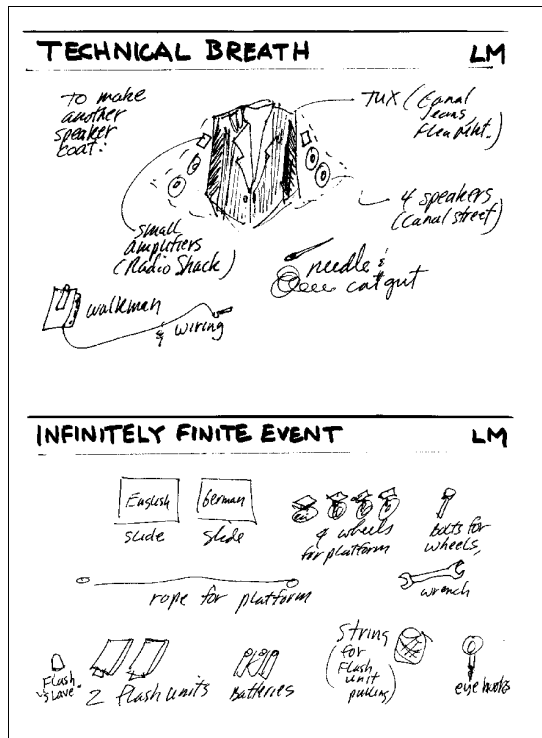 TECHNICAL BREATH LM
to make
another
speaker
coat:
TUX (Canal
Jeans
Flea Mkt.)
4 speakers
(Canal street)
small
amplifiers
(Radio Shack)
needle &
catgut
walkman
& wiring
INFINITELY FINITE EVENT LM
English
slide
German
slide
4 wheels
for platform
bolts for
wheels,
rope for platform
wrench
Flash
slave
2 flash units
Batteries
String
(for
Flash
unit
pulling)
eye hooks